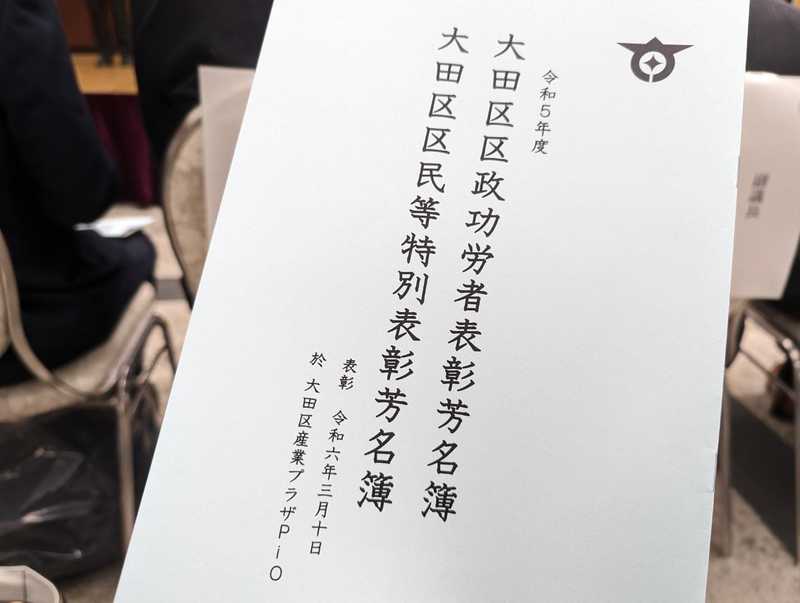 令和5年度
大田区区政功労者表彰芳名簿
大田区区民等特別表彰芳名簿
表彰 令和六年三月十日
於 大田区産業プラザPiO
副議長